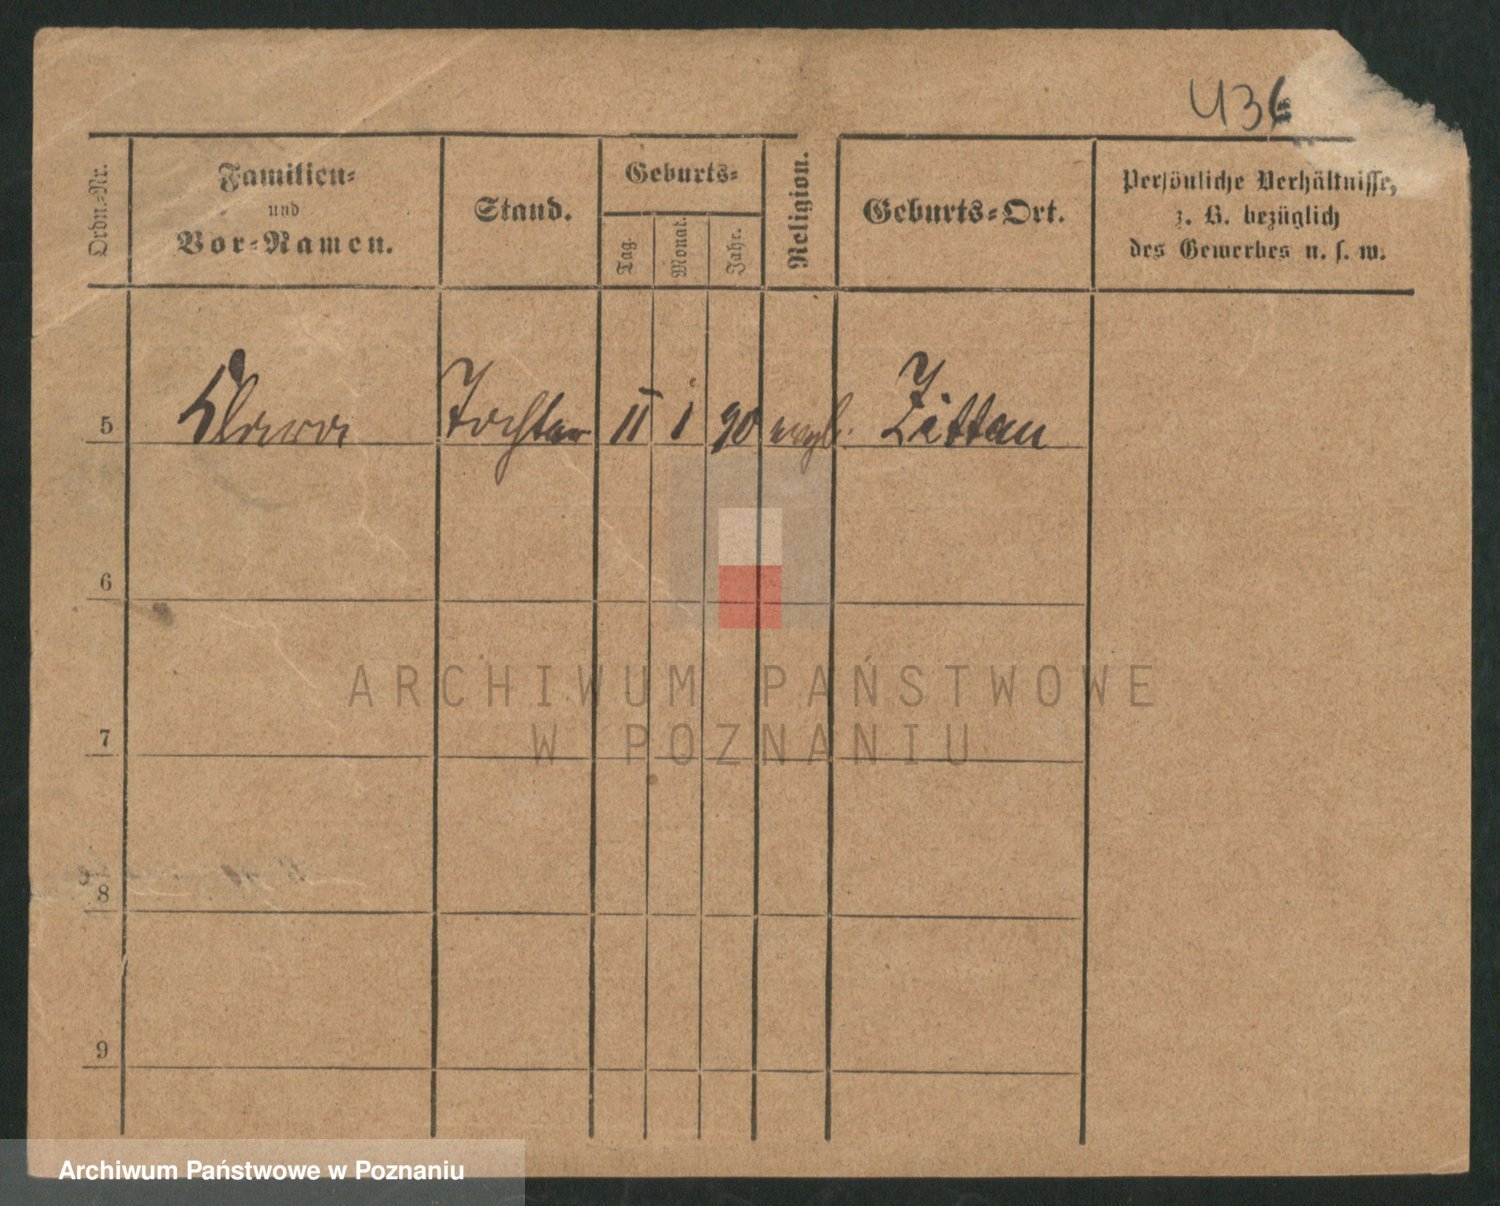 436
Ordn.-Nr.
Familien-
und
Vor-Namen.
Stand.
Geburts-
Tag.
Monat.
Jahr.
Religion.
Geburts-Ort.
Persönliche Verhältnisse,
z. B. bezüglich
des Gewerbes u. s. w.
5 Clara Tochter 11 1 90 evgl. Zittau
6
7
8
9
ARCHIWUM PAŃSTWOWE
W POZNANIU
Archiwum Państwowe w Poznaniu